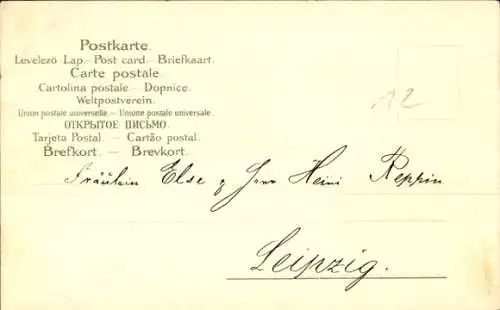 Postkarte.
Levelező-Lap.– Post card.– Briefkaart.
Carte postale.
Cartolina postale.– Dopnice.
Weltpostverein.
Union postale universelle.– Unione postale universale.
ОТКРЫТОЕ ПИСЬМО.
Tarjeta Postal. – Cartão postal.
Brefkort. – Brevkort.
12
Fräulein Else & Herr Heini Reppin
Leipzig.